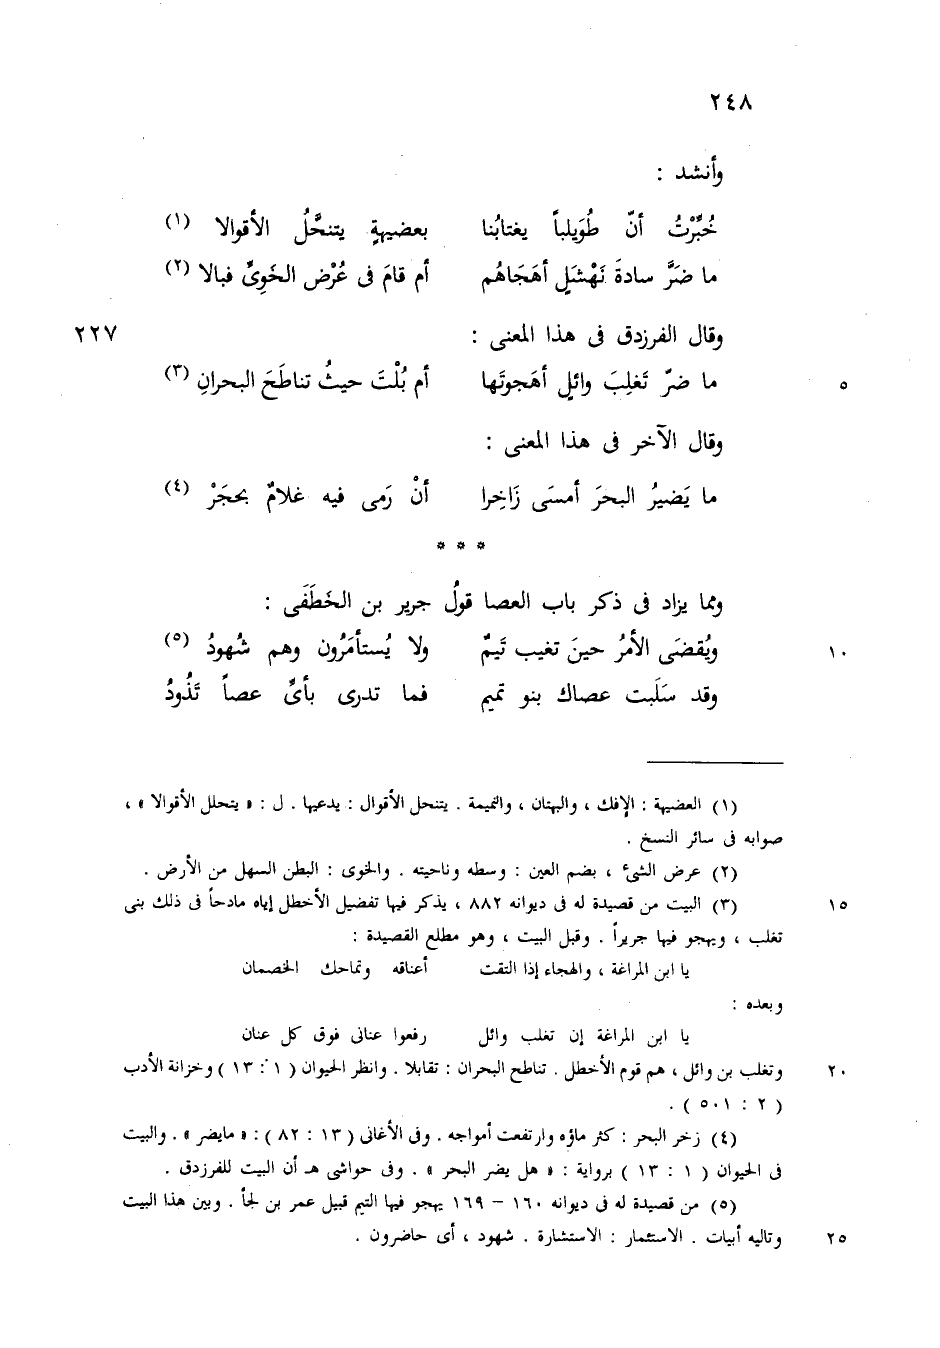 ٢٤٨
وأنشد :
خُبِّرْتُ أنّ طُوَيلباً يغتابُنا بعضيهةٍ يتنحَّلُ الأقوالا (١)
ما ضَرَّ سادةَ نَهْشَلٍ أهَجَاهُم أم قامَ فى عُرْض الخَوِىِّ فبالا (٢)
وقال الفرزدق فى هذا المعنى : ٢٢٧
ما ضرّ تَغلِبَ وائلٍ أهَجوتَها أم بُلْتَ حيثُ تناطَحَ البحرانِ (٣) ٥
وقال الآخر فى هذا المعنى :
ما يَضيرُ البحرَ أمسَى زَاخِرا أنْ رَمى فيه غلامٌ بحجَرْ (٤)
* * *
ومما يزاد فى ذكر باب العصا قولُ جرير بن الخَطَفَى :
ويُقضَى الأمرُ حينَ تغيب تَيمٌ ولا يُستأمَرُون وهم شُهودُ (٥) ١٠
وقد سَلَبت عصاك بنو تميم فما تدرى بأىِّ عصاً تَذُودُ
(١) العضيهة : الإفك ، والبهتان ، والنميمة . يتنحل الأقوال : يدعيها . ل : « يتحلل الأقوالا » ،
صوابه فى سائر النسخ .
(٢) عرض الشئ ، بضم العين : وسطه وناحيته . والخوى : البطن السهل من الأرض .
(٣) البيت من قصيدة له فى ديوانه ٨٨٢ ، يذكر فيها تفضيل الأخطل إياه مادحاً فى ذلك بنى ١٥
تغلب ، ويهجو فيها جريراً . وقبل البيت ، وهو مطلع القصيدة :
يا ابن المراغة ، والهجاء إذا التقت أعناقه وتماحك الخصمان
وبعده :
يا ابن المراغة إن تغلب وائل رفعوا عنانى فوق كل عنان
وتغلب بن وائل ، هم قوم الأخطل . تناطح البحران : تقابلا . وانظر الحيوان ( ١ : ١٣ ) وخزانة الأدب ٢٠
( ٢ : ٥٠١ ) .
(٤) زخر البحر : كثر ماؤه وارتفعت أمواجه . وفى الأغانى ( ١٣ : ٨٢ ) : « مايضر » . والبيت
فى الحيوان ( ١ : ١٣ ) برواية : « هل يضر البحر » . وفى حواشى هـ أن البيت للفرزدق .
(٥) من قصيدة له فى ديوانه ١٦٠ – ١٦٩ يهجو فيها التيم قبيل عمر بن لجأ . وبين هذا البيت
وتاليه أبيات . الاستئمار : الاستشارة . شهود ، أى حاضرون . ٢٥